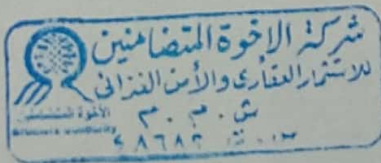 شركة الاخوة المتضامنين
للاستثمار العقارى والأمن الغذائى
ش . م . م
الأخوة المتضامنين